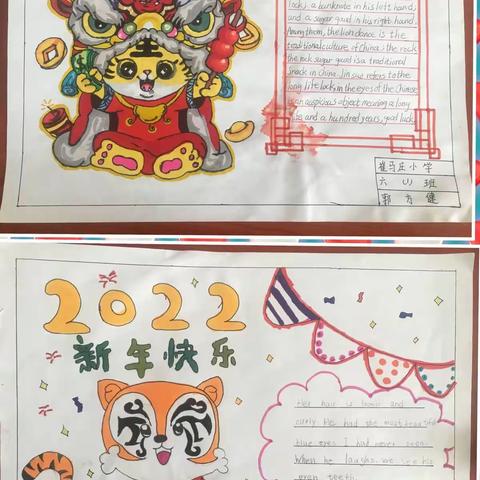 lock, a banknote in his left hand,
and a sugar gourd in his right hand.
Among them, the lion dance is the
traditional culture of China. the rock
the rock sugar gourd is a traditional
snack in China. Jin suo refers to the
long life lock, in the eyes of the Chinese
an auspicious object meaning a long
and a hundred years, good luck
崔马庄小学
六(1)班
郭方健
2022
新年快乐
Her hair is and
curly. He had the most beautiful
blue eyes I had never seen.
When he laughs, we see his
even teeth.